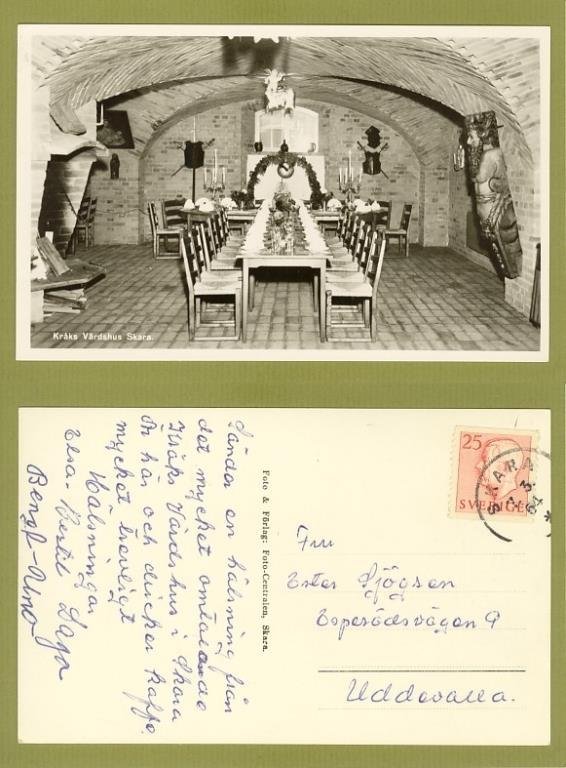 Kråks Värdshus Skara.
Sänder en hälsning från
det mycket omtalande
Kråks Värdshus i Skara
är här och dricker kaffe.
mycket trevligt
Hälsningar
Elsa. Bertil Saga
Bengt-Uno
Foto & Förlag: Foto-Centralen, Skara.
25
SVERIGE
SKARA
Fru
Ester Sjögren
Esperödsvägen 9
Uddevalla.